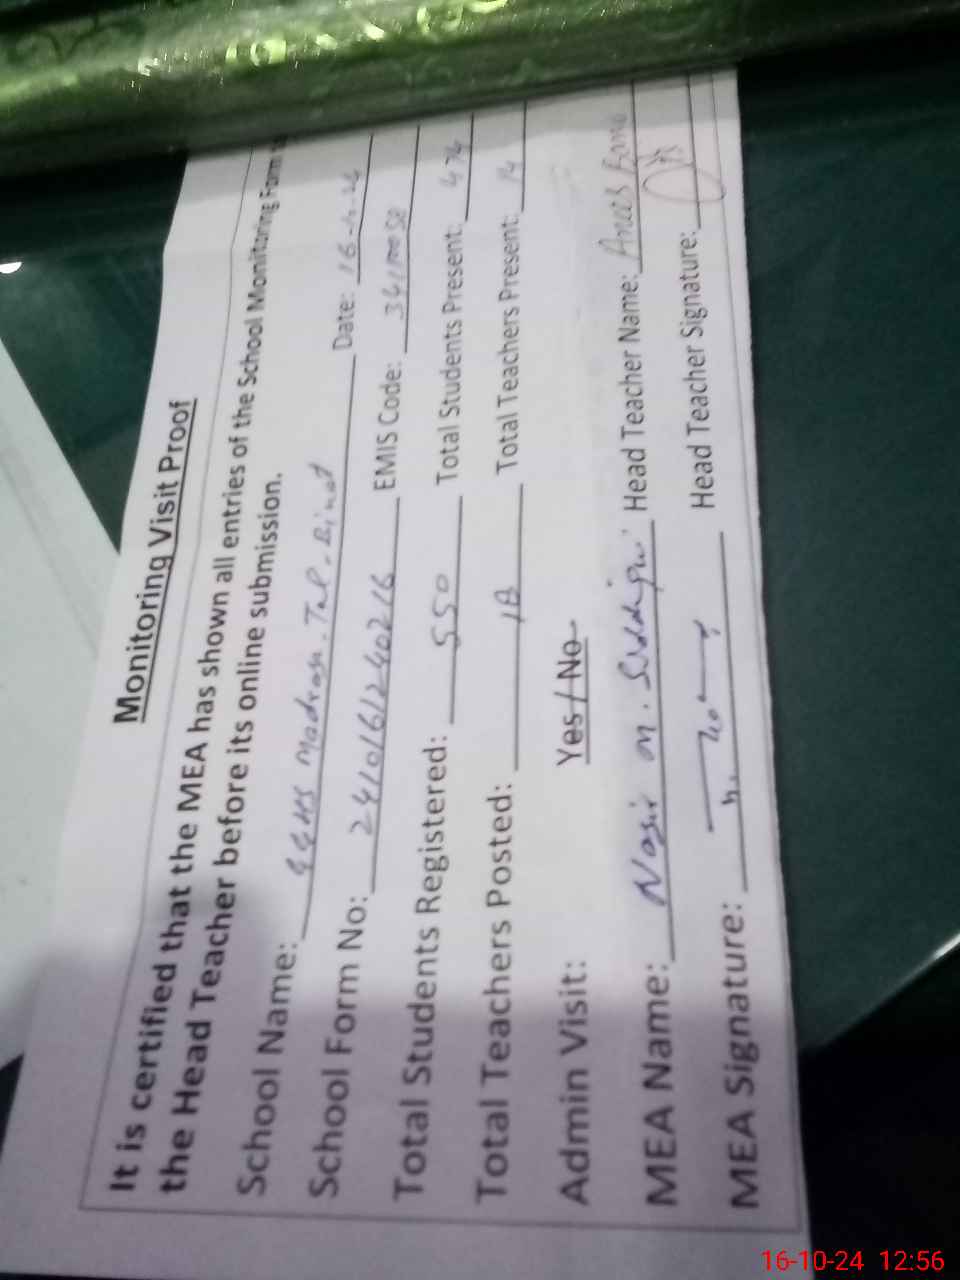 Monitoring Visit Proof
It is certified that the MEA has shown all entries of the School Monitoring Form to
the Head Teacher before its online submission.
School Name: GGHS Madrasa. Tul. Binat Date: 16-
School Form No: 2410161240216 EMIS Code: 34110058
Total Students Registered: 550 Total Students Present: 474
Total Teachers Posted: 18 Total Teachers Present: 14
Admin Visit: Yes / No
MEA Name: Nasir M. Siddiqui Head Teacher Name:
MEA Signature: Head Teacher Signature:
16-10-24 12:56